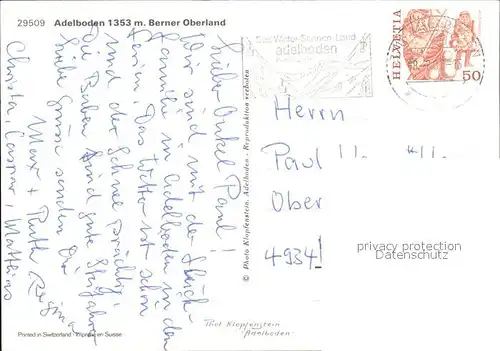 29509 Adelboden 1353 m. Berner Oberland
Lieber Onkel Paul!
Wir sind mit der
Familie in Adelboden in den
Ferien. Das Wetter ist schön
und der Schnee prächtig.
Die Buben sind gute Skifahrer
Liebe Grüsse senden Dir
Max + Ruth Regina
Christa, Caspar, Matthias
Printed in Switzerland - Imprimé en Suisse
© Photo Klopfenstein, Adelboden - Reproduktion verboten
Phot Klopfenstein
Adelboden
adelboden
HELVETIA
50
Herrn
Paul
Ober
4934
privacy protection
Datenschutz